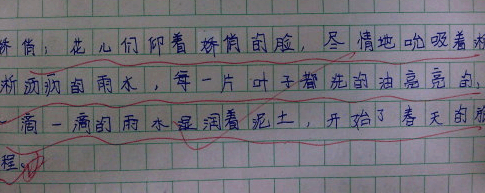 娇俏；花儿们仰着娇俏的脸，尽情地吮吸着淅
淅沥沥的雨水，每一片叶子都洗的油亮亮的，
一滴一滴的雨水湿润着泥土，开始了春天的旅
程。